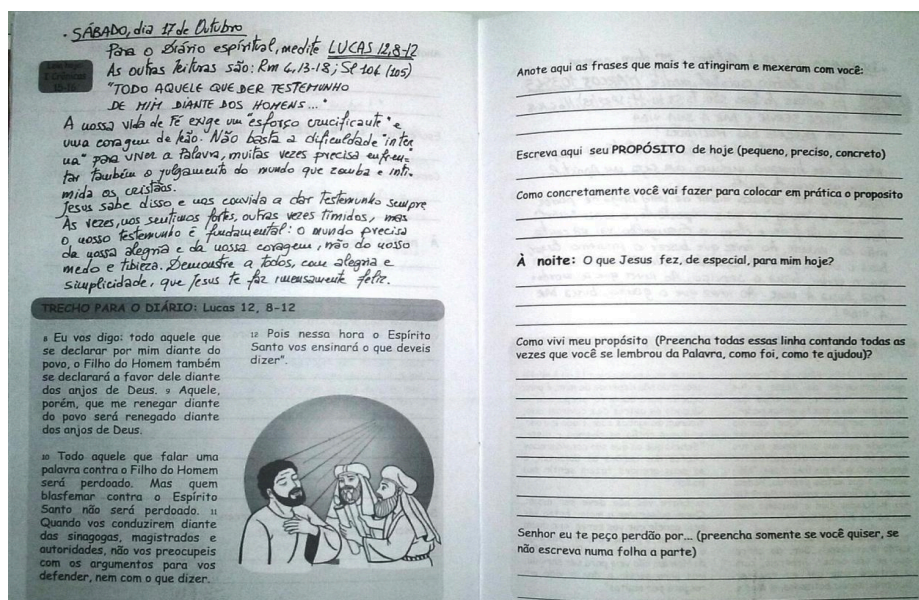 . SÁBADO, dia 17 de Outubro
Para o Diário espiritual, medite LUCAS 12,8-12
As outras leituras são: Rm 4,13-18; Sl 104 (105)
2 Crônicas
15-16
"TODO AQUELE QUE DER TESTEMUNHO
DE MIM DIANTE DOS HOMENS..."
A nossa vida de fé exige um "esforço crucificante" e
uma coragem de leão. Não basta a dificuldade "inter
na" para viver a Palavra, muitas vezes precisa enfren-
tar também o julgamento do mundo que zomba e inti-
mida os cristãos.
Jesus sabe disso e nos convida a dar testemunho sempre
Às vezes, nos sentimos fortes, outras vezes tímidos, mas
o nosso testemunho é fundamental: o mundo precisa
da nossa alegria e da nossa coragem, não do nosso
medo e tibieza. Demonstre a todos, com alegria e
simplicidade, que Jesus te faz imensamente feliz.
TRECHO PARA O DIÁRIO: Lucas 12, 8-12
8 Eu vos digo: todo aquele que
se declarar por mim diante do
povo, o Filho do Homem também
se declarará a favor dele diante
dos anjos de Deus. 9 Aquele,
porém, que me renegar diante
do povo será renegado diante
dos anjos de Deus.
10 Todo aquele que falar uma
palavra contra o Filho do Homem
será perdoado. Mas quem
blasfemar contra o Espírito
Santo não será perdoado. 11
Quando vos conduzirem diante
das sinagogas, magistrados e
autoridades, não vos preocupeis
com os argumentos para vos
defender, nem com o que dizer.
12 Pois nessa hora o Espírito
Santo vos ensinará o que deveis
dizer".
Anote aqui as frases que mais te atingiram e mexeram com você:
Escreva aqui seu PROPÓSITO de hoje (pequeno, preciso, concreto)
Como concretamente você vai fazer para colocar em prática o proposito
À noite: O que Jesus fez, de especial, para mim hoje?
Como vivi meu propósito (Preencha todas essas linha contando todas as
vezes que você se lembrou da Palavra, como foi, como te ajudou)?
Senhor eu te peço perdão por... (preencha somente se você quiser, se
não escreva numa folha a parte)